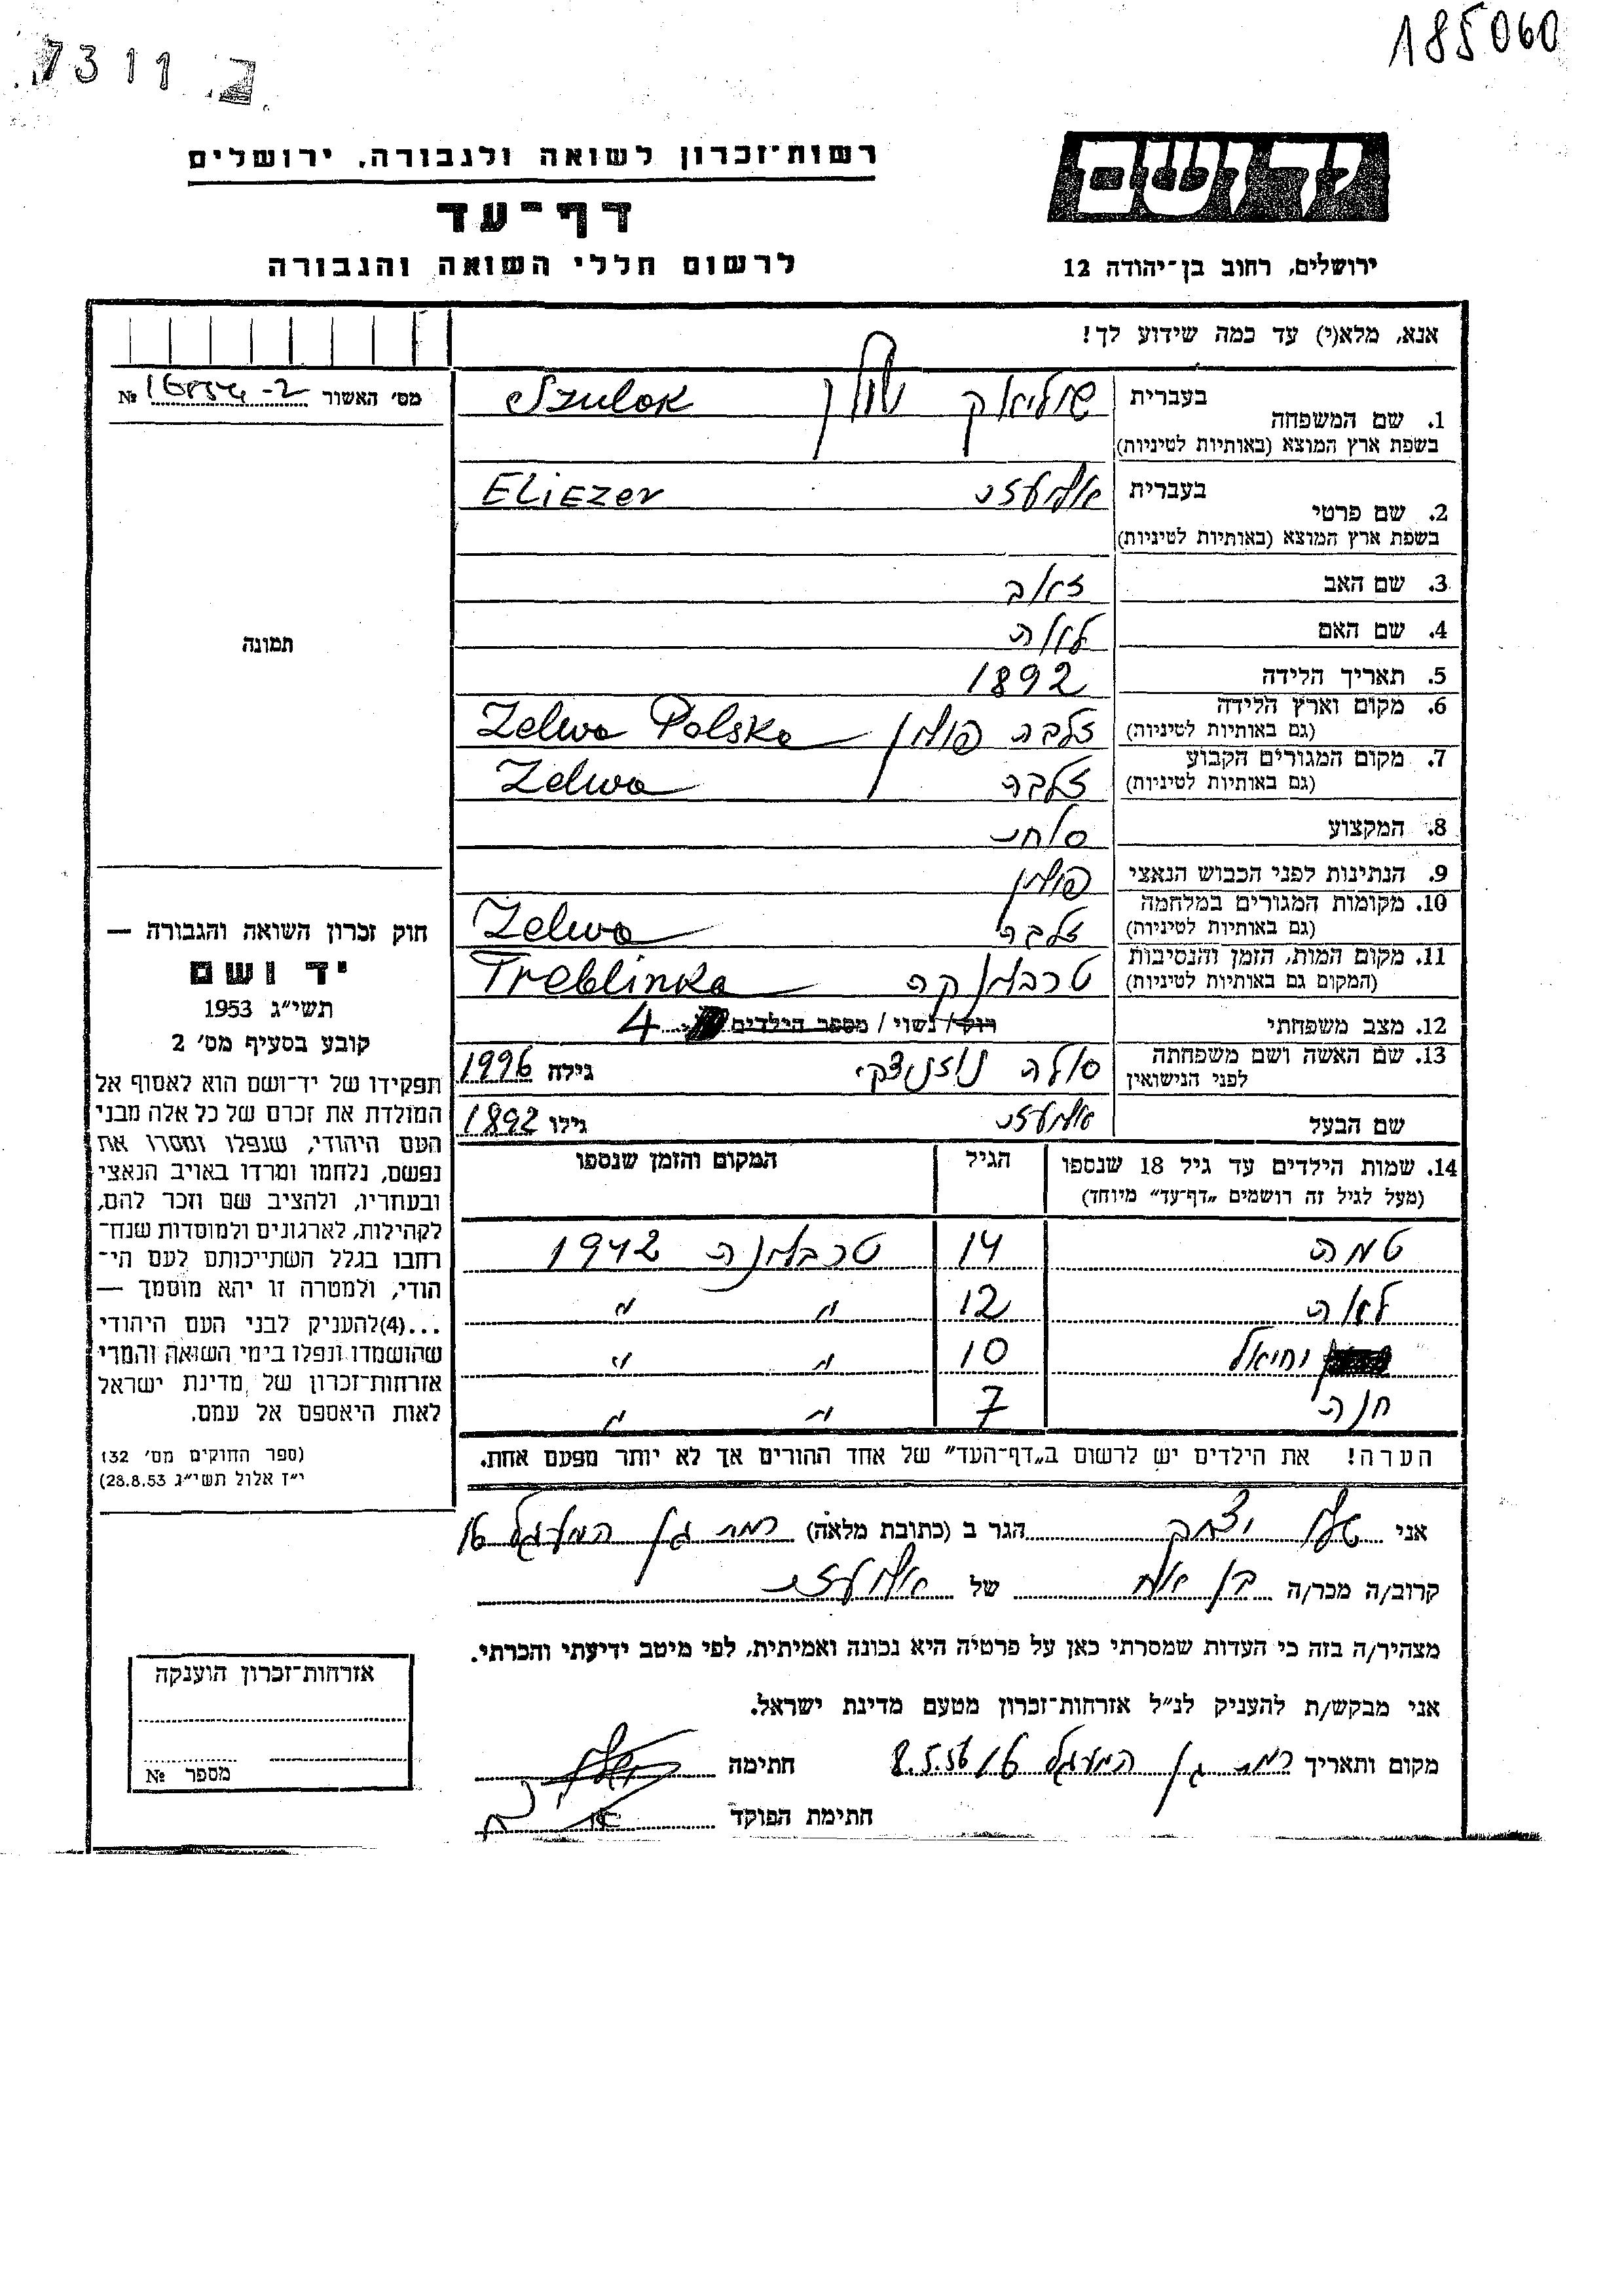 185060
7311
רשות־זכרון לשואה ולגבורה, ירושלים
יד ושם
דף־עד
לרשום חללי השואה והגבורה
ירושלים, רחוב בן־יהודה 12
אנא, מלא(י) עד כמה שידוע לך!
מס׳ האשור №
1. שם המשפחה בעברית שוליאק Szulok
בשפת ארץ המוצא (באותיות לטיניות)
2. שם פרטי בעברית אליעזר Eliezer
בשפת ארץ המוצא (באותיות לטיניות)
3. שם האב זאב
תמונה
4. שם האם
5. תאריך הלידה 1892
6. מקום וארץ הלידה זלבה פולין Zelwa Polska
(גם באותיות לטיניות)
7. מקום המגורים הקבוע זלבה Zelwa
(גם באותיות לטיניות)
8. המקצוע סוחר
9. הנתינות לפני הכבוש הנאצי פולין
10. מקומות המגורים במלחמה זלבה Zelwa
(גם באותיות לטיניות)
11. מקום המות, הזמן והנסיבות טרבלינקה Treblinka
(המקום גם באותיות לטיניות)
12. מצב משפחתי רווק / נשוי / מספר הילדים 4
13. שם האשה ושם משפחתה גילה 1996
לפני הנישואין
שם הבעל אליעזר גילו 1892
14. שמות הילדים עד גיל 18 שנספו הגיל המקום והזמן שנספו
(מעל לגיל זה רושמים „דף־עד״ מיוחד)
טמה 14 טרבלינה 1942
לאה 12 " "
יחיאל 10 " "
חנה 7 " "
הערה! את הילדים יש לרשום ב„דף־העד״ של אחד ההורים אך לא יותר מפעם אחת.
חוק זכרון השואה והגבורה —
יד ושם
תשי״ג 1953
קובע בסעיף מס׳ 2
תפקידו של יד־ושם הוא לאסוף אל
המולדת את זכרם של כל אלה מבני
העם היהודי, שנפלו ומסרו את
נפשם, נלחמו ומרדו באויב הנאצי
ובעוזריו, ולהציב שם וזכר להם,
לקהילות, לארגונים ולמוסדות שנח־
רבו בגלל השתייכותם לעם הי־
הודי, ולמטרה זו יהא מוסמך —
...(4) להעניק לבני העם היהודי
שהושמדו ונפלו בימי השואה והמרי
אזרחות־זכרון של מדינת ישראל
לאות היאספם אל עמם.
(ספר החוקים מס׳ 132
י״ז אלול תשי״ג 28.8.53)
אני יצחק הגר ב (כתובת מלאה) רמת גן המעגל 16
קרוב/ה מכר/ה בן אח של אליעזר
מצהיר/ה בזה כי העדות שמסרתי כאן על פרטיה היא נכונה ואמיתית, לפי מיטב ידיעתי והכרתי.
אני מבקש/ת להעניק לנ״ל אזרחות־זכרון מטעם מדינת ישראל.
מקום ותאריך רמת גן המעגל 16 8.5.56 חתימה
חתימת הפוקד
אזרחות־זכרון הוענקה
מספר №